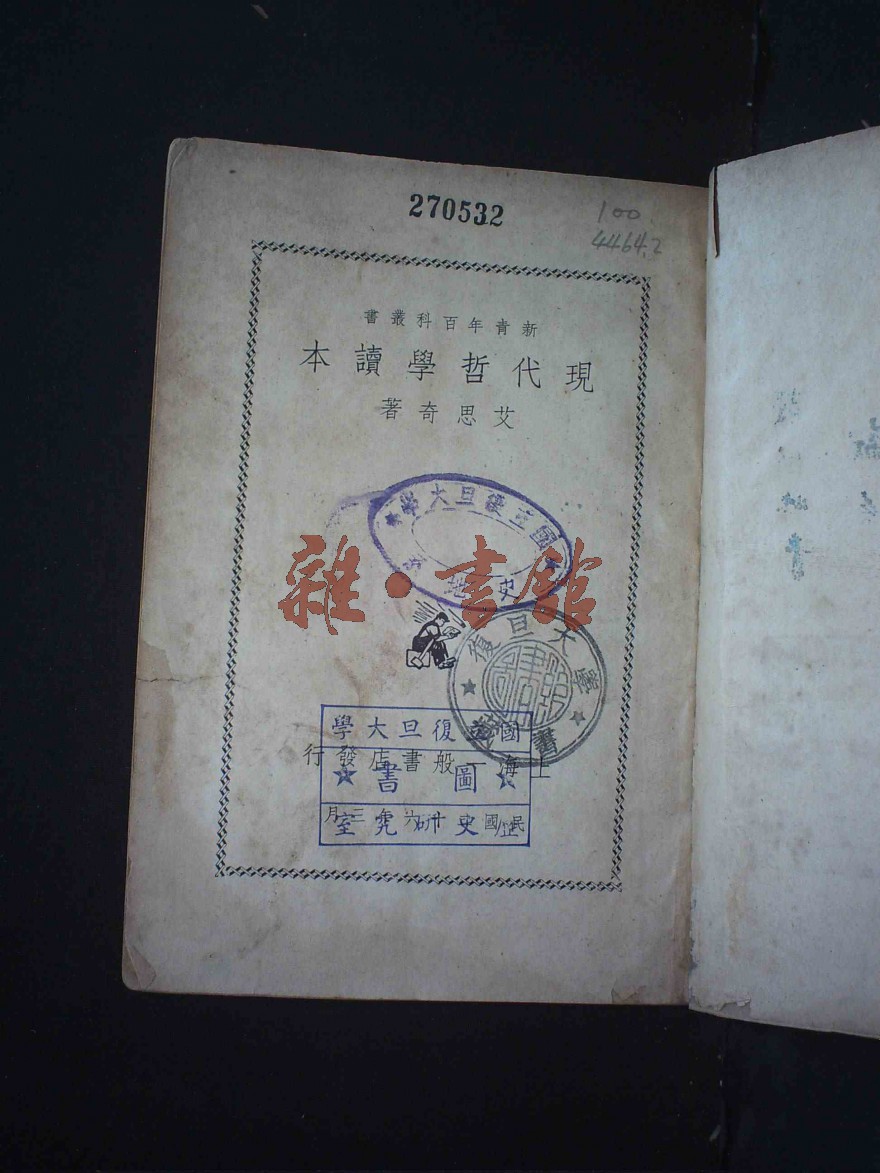 270532
100
4464.2
新青年百科叢書
現代哲學讀本
艾思奇著
國立復旦大學
史地
雜·書館
復旦大學
書
國立復旦大學
上海一般書店發行
圖書
史研究室
民國 十六年三月